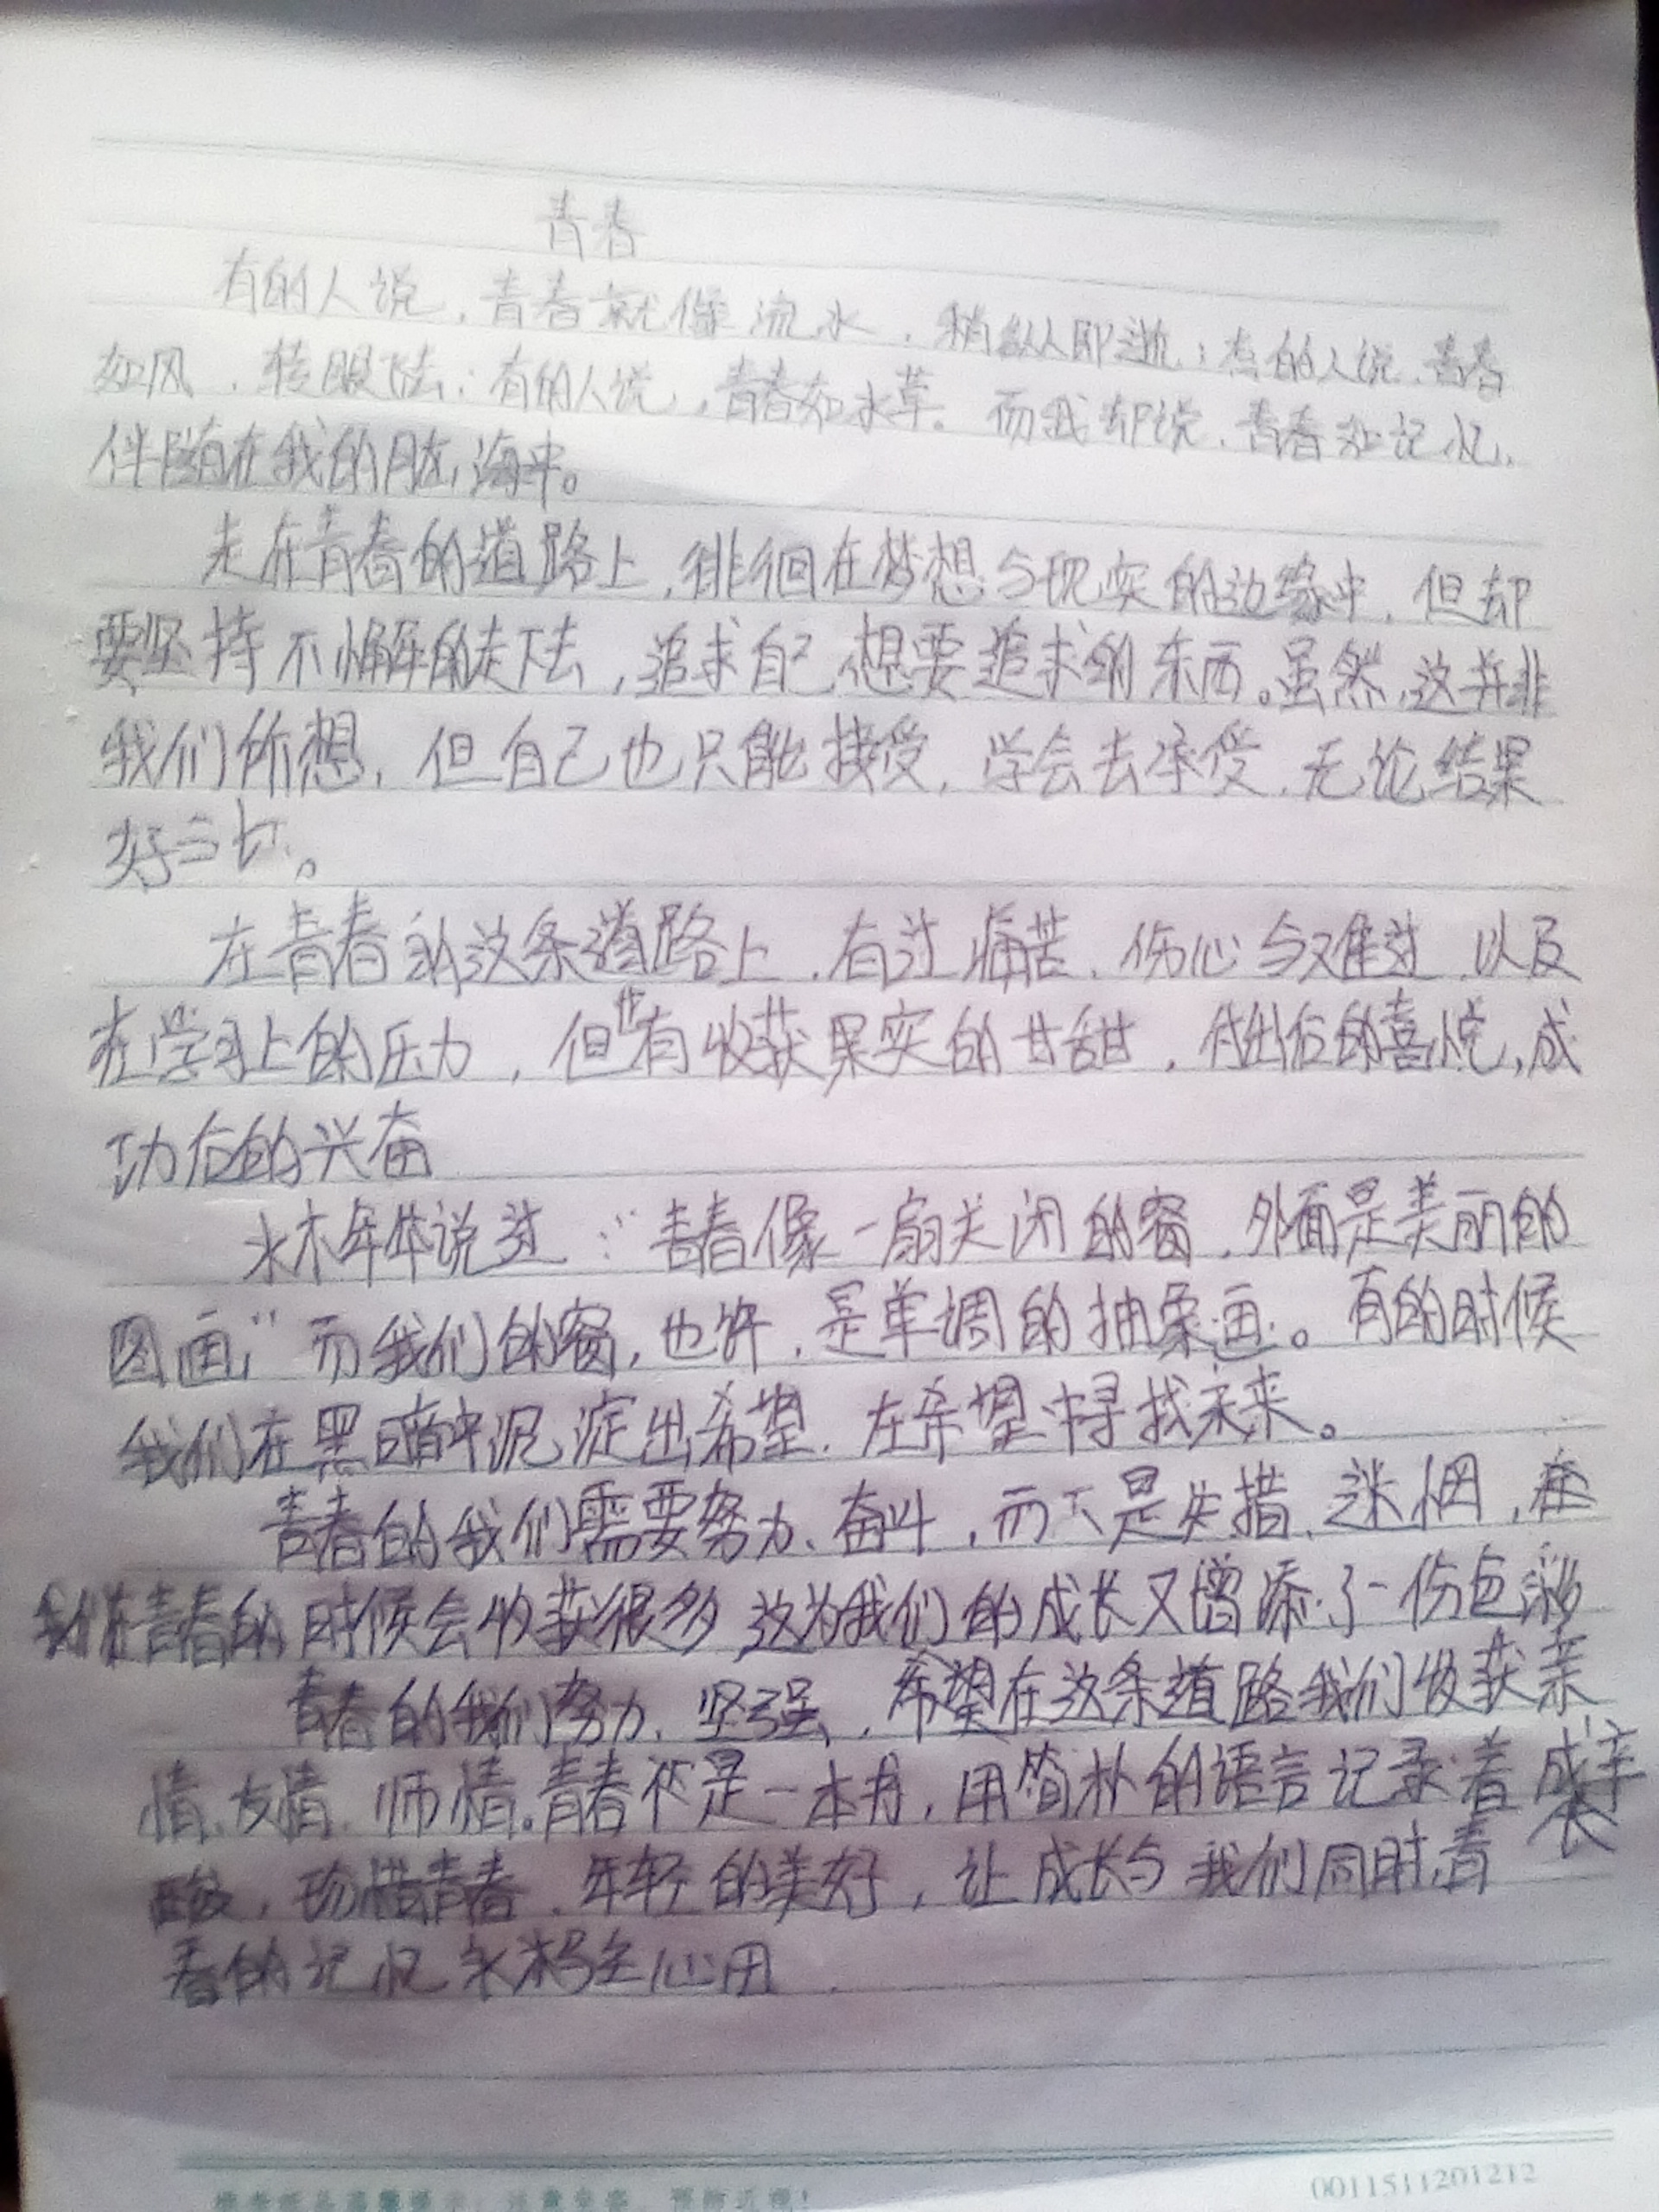 青春
有的人说，青春就像流水，稍纵即逝；有的人说，青春
如风，转眼飞去；有的人说，青春如水草。而我却说，青春如记忆，
伴随在我的脑海中。
走在青春的道路上，徘徊在梦想与现实的边缘中，但却
要坚持不懈的走下去，追求自己想要追求的东西。虽然，这并非
我们所想，但自己也只能接受，学会去承受，无论结果
好与坏。
在青春的这条道路上，有过痛苦、伤心与难过，以及
在学习上的压力，但也有收获果实的甘甜，付出后的喜悦，成
功后的兴奋
水木年华说过：“青春像一扇关闭的窗，外面是美丽的
图画，”而我们的窗，也许，是单调的抽象画。有的时候
我们在黑暗中沉淀出希望，在希望中寻找未来。
青春的我们需要努力、奋斗，而不是失措、迷惘，
我们在青春的时候会收获很多 这为我们的成长又增添了一份色彩
青春的我们努力、坚强，希望在这条道路我们收获亲
情、友情、师情。青春是一本书，用简朴的语言记录着成长辛
酸，珍惜青春、年轻的美好，让成长与我们同时，青
春的记忆永远
0011511201212